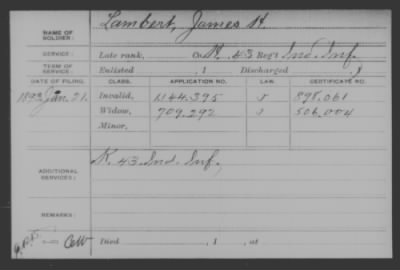 NAME OF SOLDIER: Lambert, James H.
SERVICE: Late rank, Co. K, 43 Reg't Ind. Inf.
TERM OF SERVICE: Enlisted , 1 Discharged , 1
DATE OF FILING. CLASS. APPLICATION NO. LAW. CERTIFICATE NO.
1892 Jan. 21. Invalid, 1,144,395 898,061
Widow, 709,292 506,004
Minor,
ADDITIONAL SERVICES: K. 43 Ind. Inf.
REMARKS:
Died , 1 , at